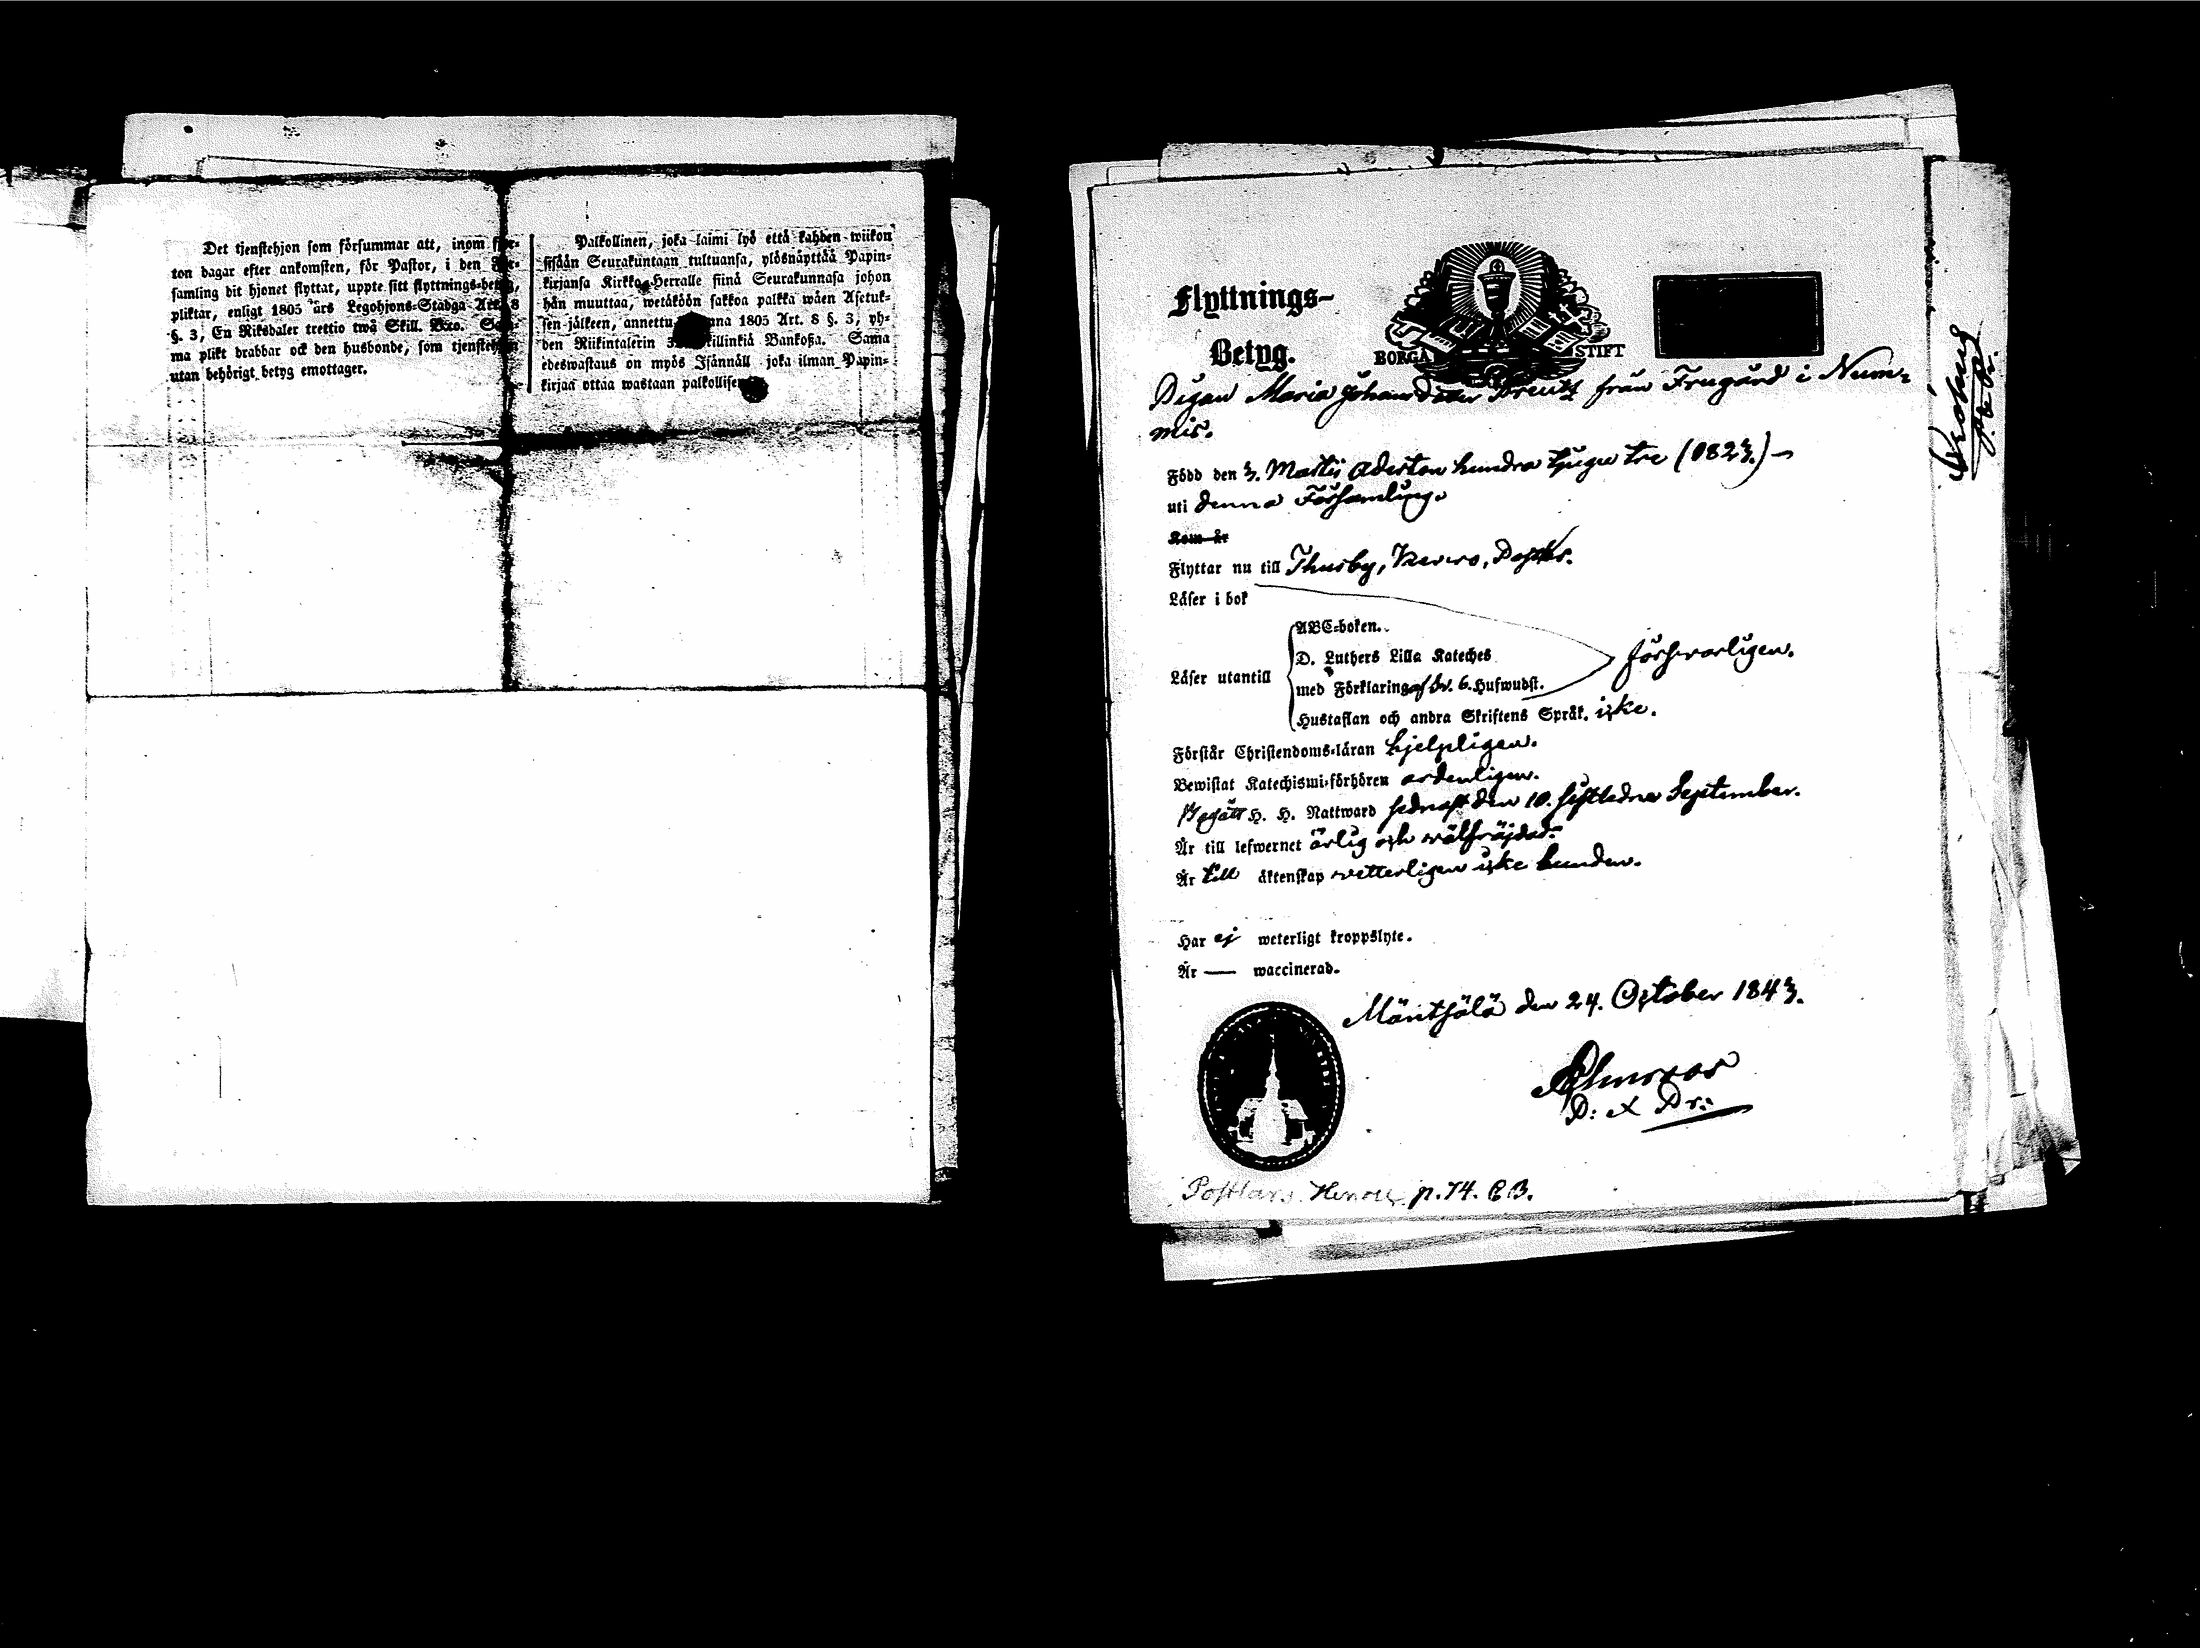 Det tjenstehjon som försummar att, inom fjor-
ton dagar efter ankomsten, för Pastor, i den För-
samling dit hjonet flyttat, uppte sitt flyttnings-betyg,
pliktar, enligt 1805 års Legohjons-Stadga Art. 8
§. 3, En Riksdaler trettio twå Skill. B:co. Sam-
ma plikt drabbar ock den husbonde, som tjenstehjon
utan behörigt betyg emottager.
Palkollinen, joka laimi lyö että kahden wiikon
sisään Seurakuntaan tultuansa, ylösnäyttää Papin-
kirjansa Kirkko-Herralle siinä Seurakunnasa johon
hän muuttaa, wetäköön sakkoa palkka wäen Asetuk-
sen jälkeen, annettu wuonna 1805 Art. 8 §. 3, yh-
den Riikintalerin 32 killinkiä Bankosa. Sama
edeswastaus on myös Isännäll joka ilman Papin-
kirjaa ottaa wastaan palkollisen
Flyttnings-
Betyg.
BORGÅ STIFT
Pigan Maria Johansdotter från Frugård i Num-
mis.
Född den 3. Martii Aderton hundra tjugu tre (1823.)
uti denna Församling.
Kom år
Flyttar nu till Thusby,
Läser i bok
ABC-boken.
D. Luthers Lilla Kateches
Läser utantill
försvarligen.
med Förklaring af 6. Hufwudst.
Hustaflan och andra Skriftens Språk. icke.
Förstår Christendoms-läran hjelpligen.
Bewistat Katechismi-förhören ordenligen.
Begått H. H. Nattward sednast den 10. sistledne September.
Är till lefwernet ärlig och wälfräjdad.
Är till äktenskap vetterligen icke bunden.
Har ej weterligt kroppslyte.
Är — waccinerad.
Mäntsälä den 24. October 1843.
p. 74. CB.